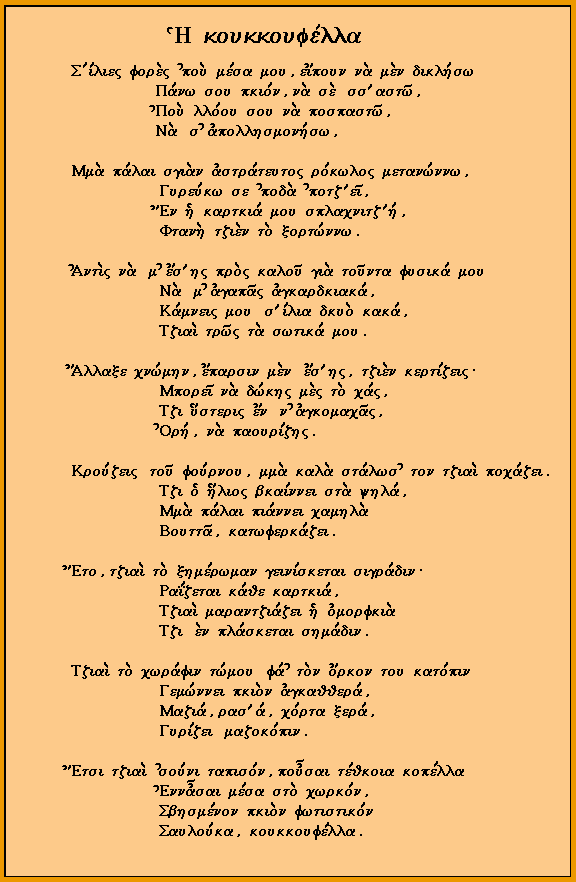 Ἡ κουκκουφέλλα
Σ΄ίλιες φορὲς ᾿ποὺ μέσα μου, εἴπουν νὰ μὲν δικλήσω
Πάνω σου πκιόν, νὰ σὲ σσ΄αστῶ,
᾿Ποὺ λλόου σου νὰ ποσπαστῶ,
Νὰ σ᾿ ἀπολλησμονήσω,
Μμὰ πάλαι σγιὰν ἀστράτευτος ρόκωλος μετανώννω,
Γυρεύκω σε ᾿ποδὰ ᾿ποτζ΄εῖ,
Ἔν ἡ καρτκιά μου σπλαχνιτζ΄ή,
Φτανὴ τζιὲν τὸ ξορτώννω.
Ἀντὶς νὰ μ᾿ ἔσ΄ης πρὸς καλοῦ γιὰ τοῦντα φυσικά μου
Νὰ μ᾿ ἀγαπᾶς ἀγκαρδκιακά,
Κάμνεις μου σ΄ίλια δκυὸ κακά,
Τζιαὶ τρῶς τὰ σωτικά μου.
Ἄλλαξε χνώμην, ἔπαρσιν μὲν ἔσ΄ης, τζιὲν κερτίζεις·
Μπορεῖ νὰ δώκης μὲς τὸ χάς,
Τζι ὕστερις ἔν ν᾿ ἀγκομαχᾶς,
Ὀρή, νὰ παουρίζης.
Κρούζεις τοῦ φούρνου, μμὰ καλὰ στάλωσ᾿ τον τζιαὶ ποχάζει.
Τζι ὁ ἥλιος βκαίννει στὰ ψηλά,
Μμὰ πάλαι πιάννει χαμηλὰ
Βουττᾶ, κατωφερκάζει.
Ἔτο, τζιαὶ τὸ ξημέρωμαν γεινίσκεται σιγράδιν·
Ραΐζεται κάθε καρτκιά,
Τζιαὶ μαραντζιάζει ἡ ὀμορφκιὰ
Τζι ὲν πλάσκεται σημάδιν.
Τζιαὶ τὸ χωράφιν τώμου φά᾿ τὸν ὄρκον του κατόπιν
Γεμώννει πκιὸν ἀγκαθθερά,
Μαζιά, ρασ΄ά, χόρτα ξερά,
Γυρίζει μαζοκόπιν.
Ἔτσι τζιαὶ ᾿σούνι ταπισόν, ποὖσαι τέθκοια κοπέλλα
Ἐννἆσαι μέσα στὸ χωρκόν,
Σβησμένον πκιὸν φωτιστικόν
Σαυλούκα, κουκκουφέλλα.